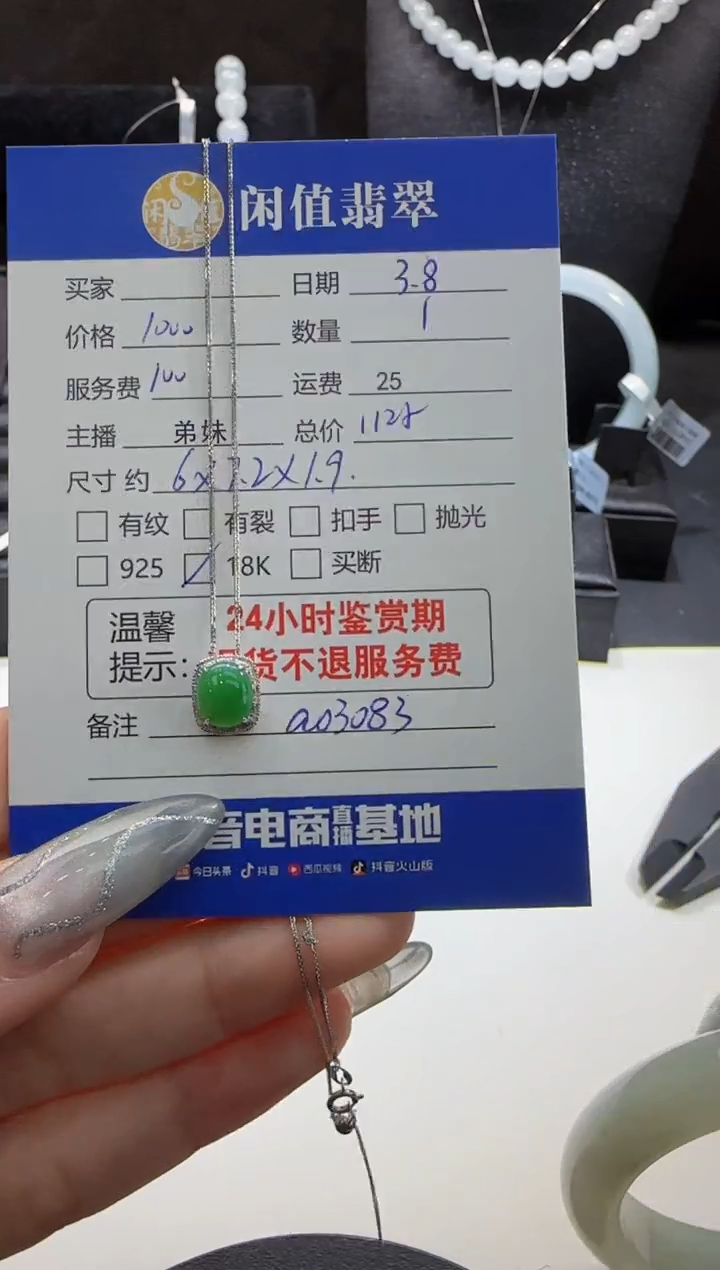 闲值翡翠
买家 日期 3.8
价格 1000 数量 1
服务费 100 运费 25
主播 弟妹 总价 1125
尺寸 约 6x7.2x1.9.
有纹 有裂 扣手 抛光
925 18K 买断
温馨 24小时鉴赏期
提示: 货不退服务费
备注 a03083
音电商直播基地
今日头条 抖音 西瓜视频 抖音火山版